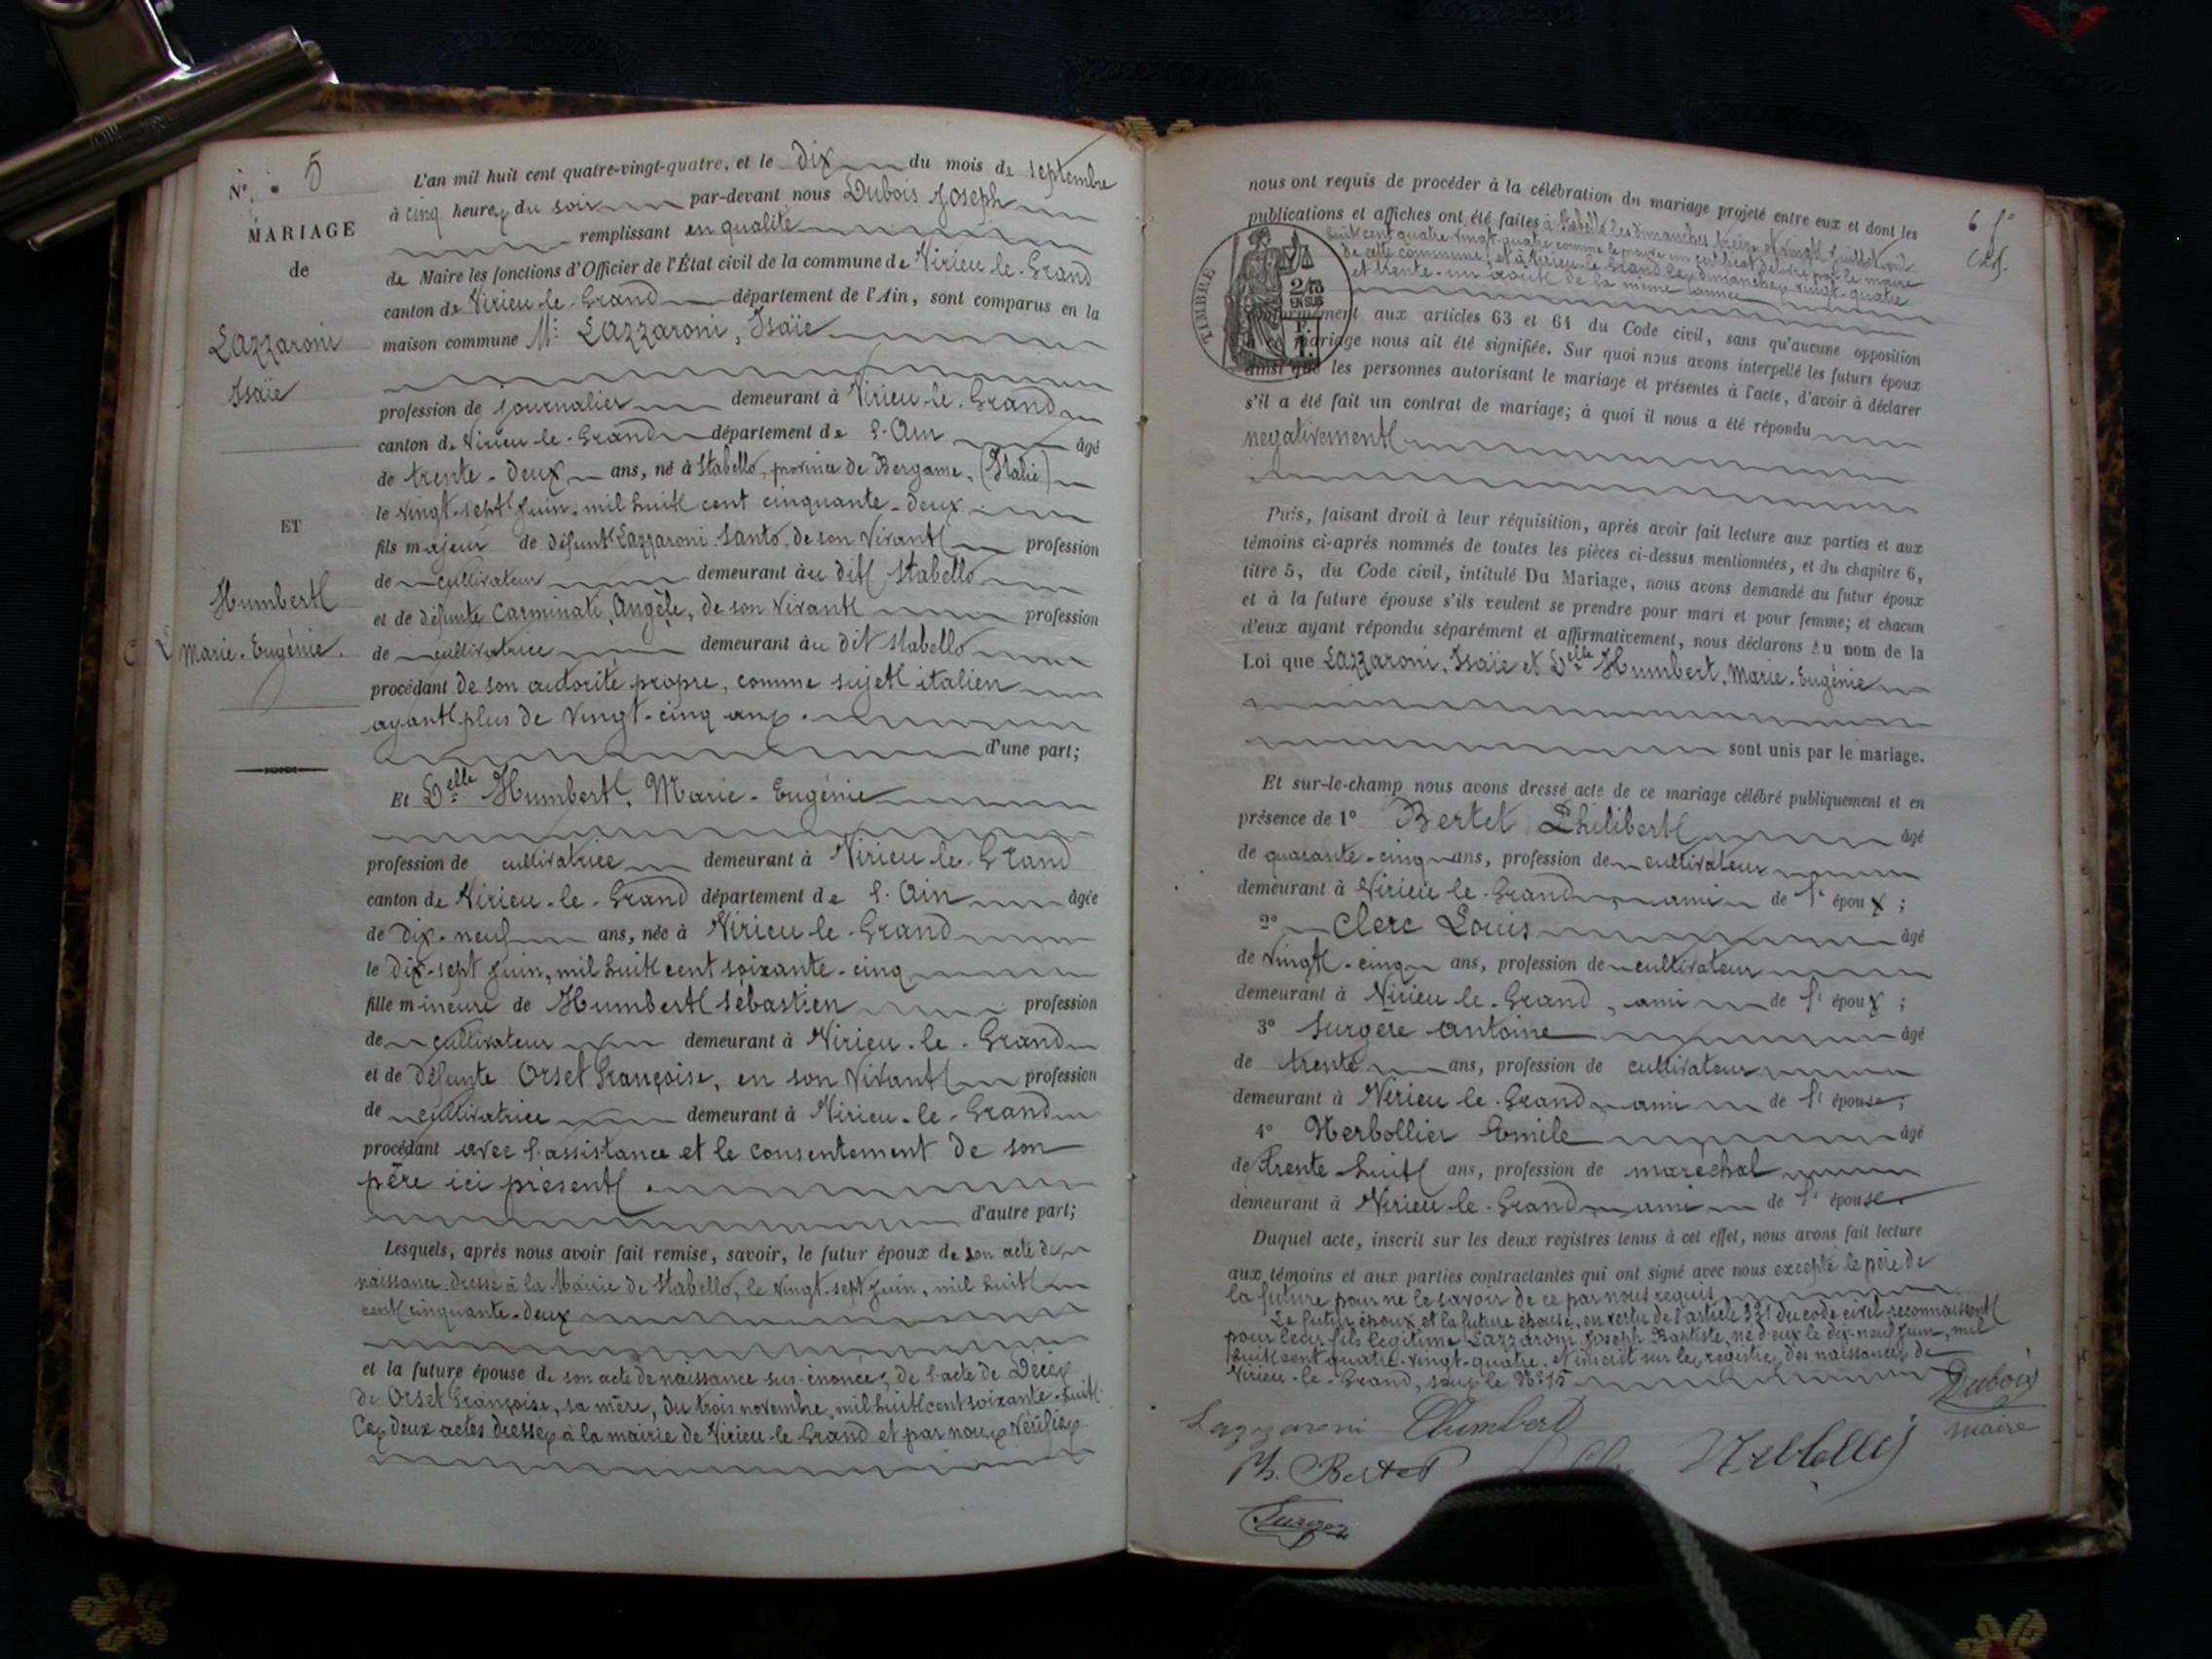 N° 5
MARIAGE
de
Lazzaroni
Isaïe
ET
Humbert
Marie-Eugénie.
L'an mil huit cent quatre-vingt-quatre, et le dix du mois de septembre
à cinq heures du soir par-devant nous Dubois Joseph
remplissant en qualité
de Maire les fonctions d'Officier de l'État civil de la commune de Virieu-le-Grand
canton de Virieu-le-Grand département de l'Ain, sont comparus en la
maison commune Mr Lazzaroni, Isaïe
profession de journalier demeurant à Virieu-le-Grand
canton de Virieu-le-Grand département de l'Ain âgé
de trente-deux ans, né à Stabello, province de Bergame, (Italie)
le vingt-sept Juin, mil huit cent cinquante-deux
fils majeur de défunt Lazzaroni Santo, de son vivant profession
de cultivateur demeurant au dit Stabello
et de défunte Carminati, Angèle, de son vivant profession
de cultivatrice demeurant au dit Stabello
procédant de son autorité propre, comme sujet italien
ayant plus de vingt-cinq ans.
d'une part;
Et Delle Humbert, Marie-Eugénie
profession de cultivatrice demeurant à Virieu-le-Grand
canton de Virieu-le-Grand département de l'Ain âgée
de dix-neuf ans, née à Virieu-le-Grand
le dix-sept Juin, mil huit cent soixante-cinq
fille mineure de Humbert Sébastien profession
de cultivateur demeurant à Virieu-le-Grand
et de défunte Orset Françoise, en son vivant profession
de cultivatrice demeurant à Virieu-le-Grand
procédant avec l'assistance et le consentement de son
père ici présent.
d'autre part;
Lesquels, après nous avoir fait remise, savoir, le futur époux de son acte de
naissance dressé à la Mairie de Stabello, le vingt-sept Juin, mil huit
cent cinquante-deux
et la future épouse de son acte de naissance sus-énoncé, de l'acte de décès
de Orset Françoise, sa mère, du trois novembre, mil huit cent soixante-huit
Ces deux actes dressés à la mairie de Virieu-le-Grand et par nous vérifiés
nous ont requis de procéder à la célébration du mariage projeté entre eux et dont les
publications et affiches ont été faites à Stabello les dimanches treize et vingt Juillet mil
huit cent quatre vingt-quatre comme le prouve un certificat délivré par le maire
de cette commune; et à Virieu-le-Grand les dimanches vingt-quatre
et trente-un août de la même année
TIMBRE
EN SUS
conformément aux articles 63 et 64 du Code civil, sans qu'aucune opposition
à ce mariage nous ait été signifiée. Sur quoi nous avons interpellé les futurs époux
ainsi que les personnes autorisant le mariage et présentes à l'acte, d'avoir à déclarer
s'il a été fait un contrat de mariage; à quoi il nous a été répondu
négativement
Puis, faisant droit à leur réquisition, après avoir fait lecture aux parties et aux
témoins ci-après nommés de toutes les pièces ci-dessus mentionnées, et du chapitre 6,
titre 5, du Code civil, intitulé Du Mariage, nous avons demandé au futur époux
et à la future épouse s'ils veulent se prendre pour mari et pour femme; et chacun
d'eux ayant répondu séparément et affirmativement, nous déclarons Au nom de la
Loi que Lazzaroni, Isaïe et Delle Humbert, Marie-Eugénie
sont unis par le mariage.
Et sur-le-champ nous avons dressé acte de ce mariage célébré publiquement et en
présence de 1° Bertet Philibert âgé
de quarante-cinq ans, profession de cultivateur
demeurant à Virieu-le-Grand ami de l' époux;
2° Clerc Louis âgé
de vingt-cinq ans, profession de cultivateur
demeurant à Virieu-le-Grand, ami de l' époux;
3° Surgère Antoine âgé
de trente ans, profession de cultivateur
demeurant à Virieu-le-Grand ami de l' épouse;
4° Nerbollier Emile âgé
de trente-huit ans, profession de maréchal
demeurant à Virieu-le-Grand ami de l' épouse.
Duquel acte, inscrit sur les deux registres tenus à cet effet, nous avons fait lecture
aux témoins et aux parties contractantes qui ont signé avec nous excepté le père de
la future pour ne le savoir de ce par nous requis
Le futur époux et la future épouse, en vertu de l'article 331 du code civil reconnaissent
pour leur fils légitime Lazzaroni Joseph Baptiste, né d'eux le dix-neuf Juin, mil
huit cent quatre-vingt-quatre. et inscrit sur les registres des naissances de
Virieu-le-Grand, sous le N° 15
Dubois
maire
Lazzaroni Humbert
Ph. Bertet